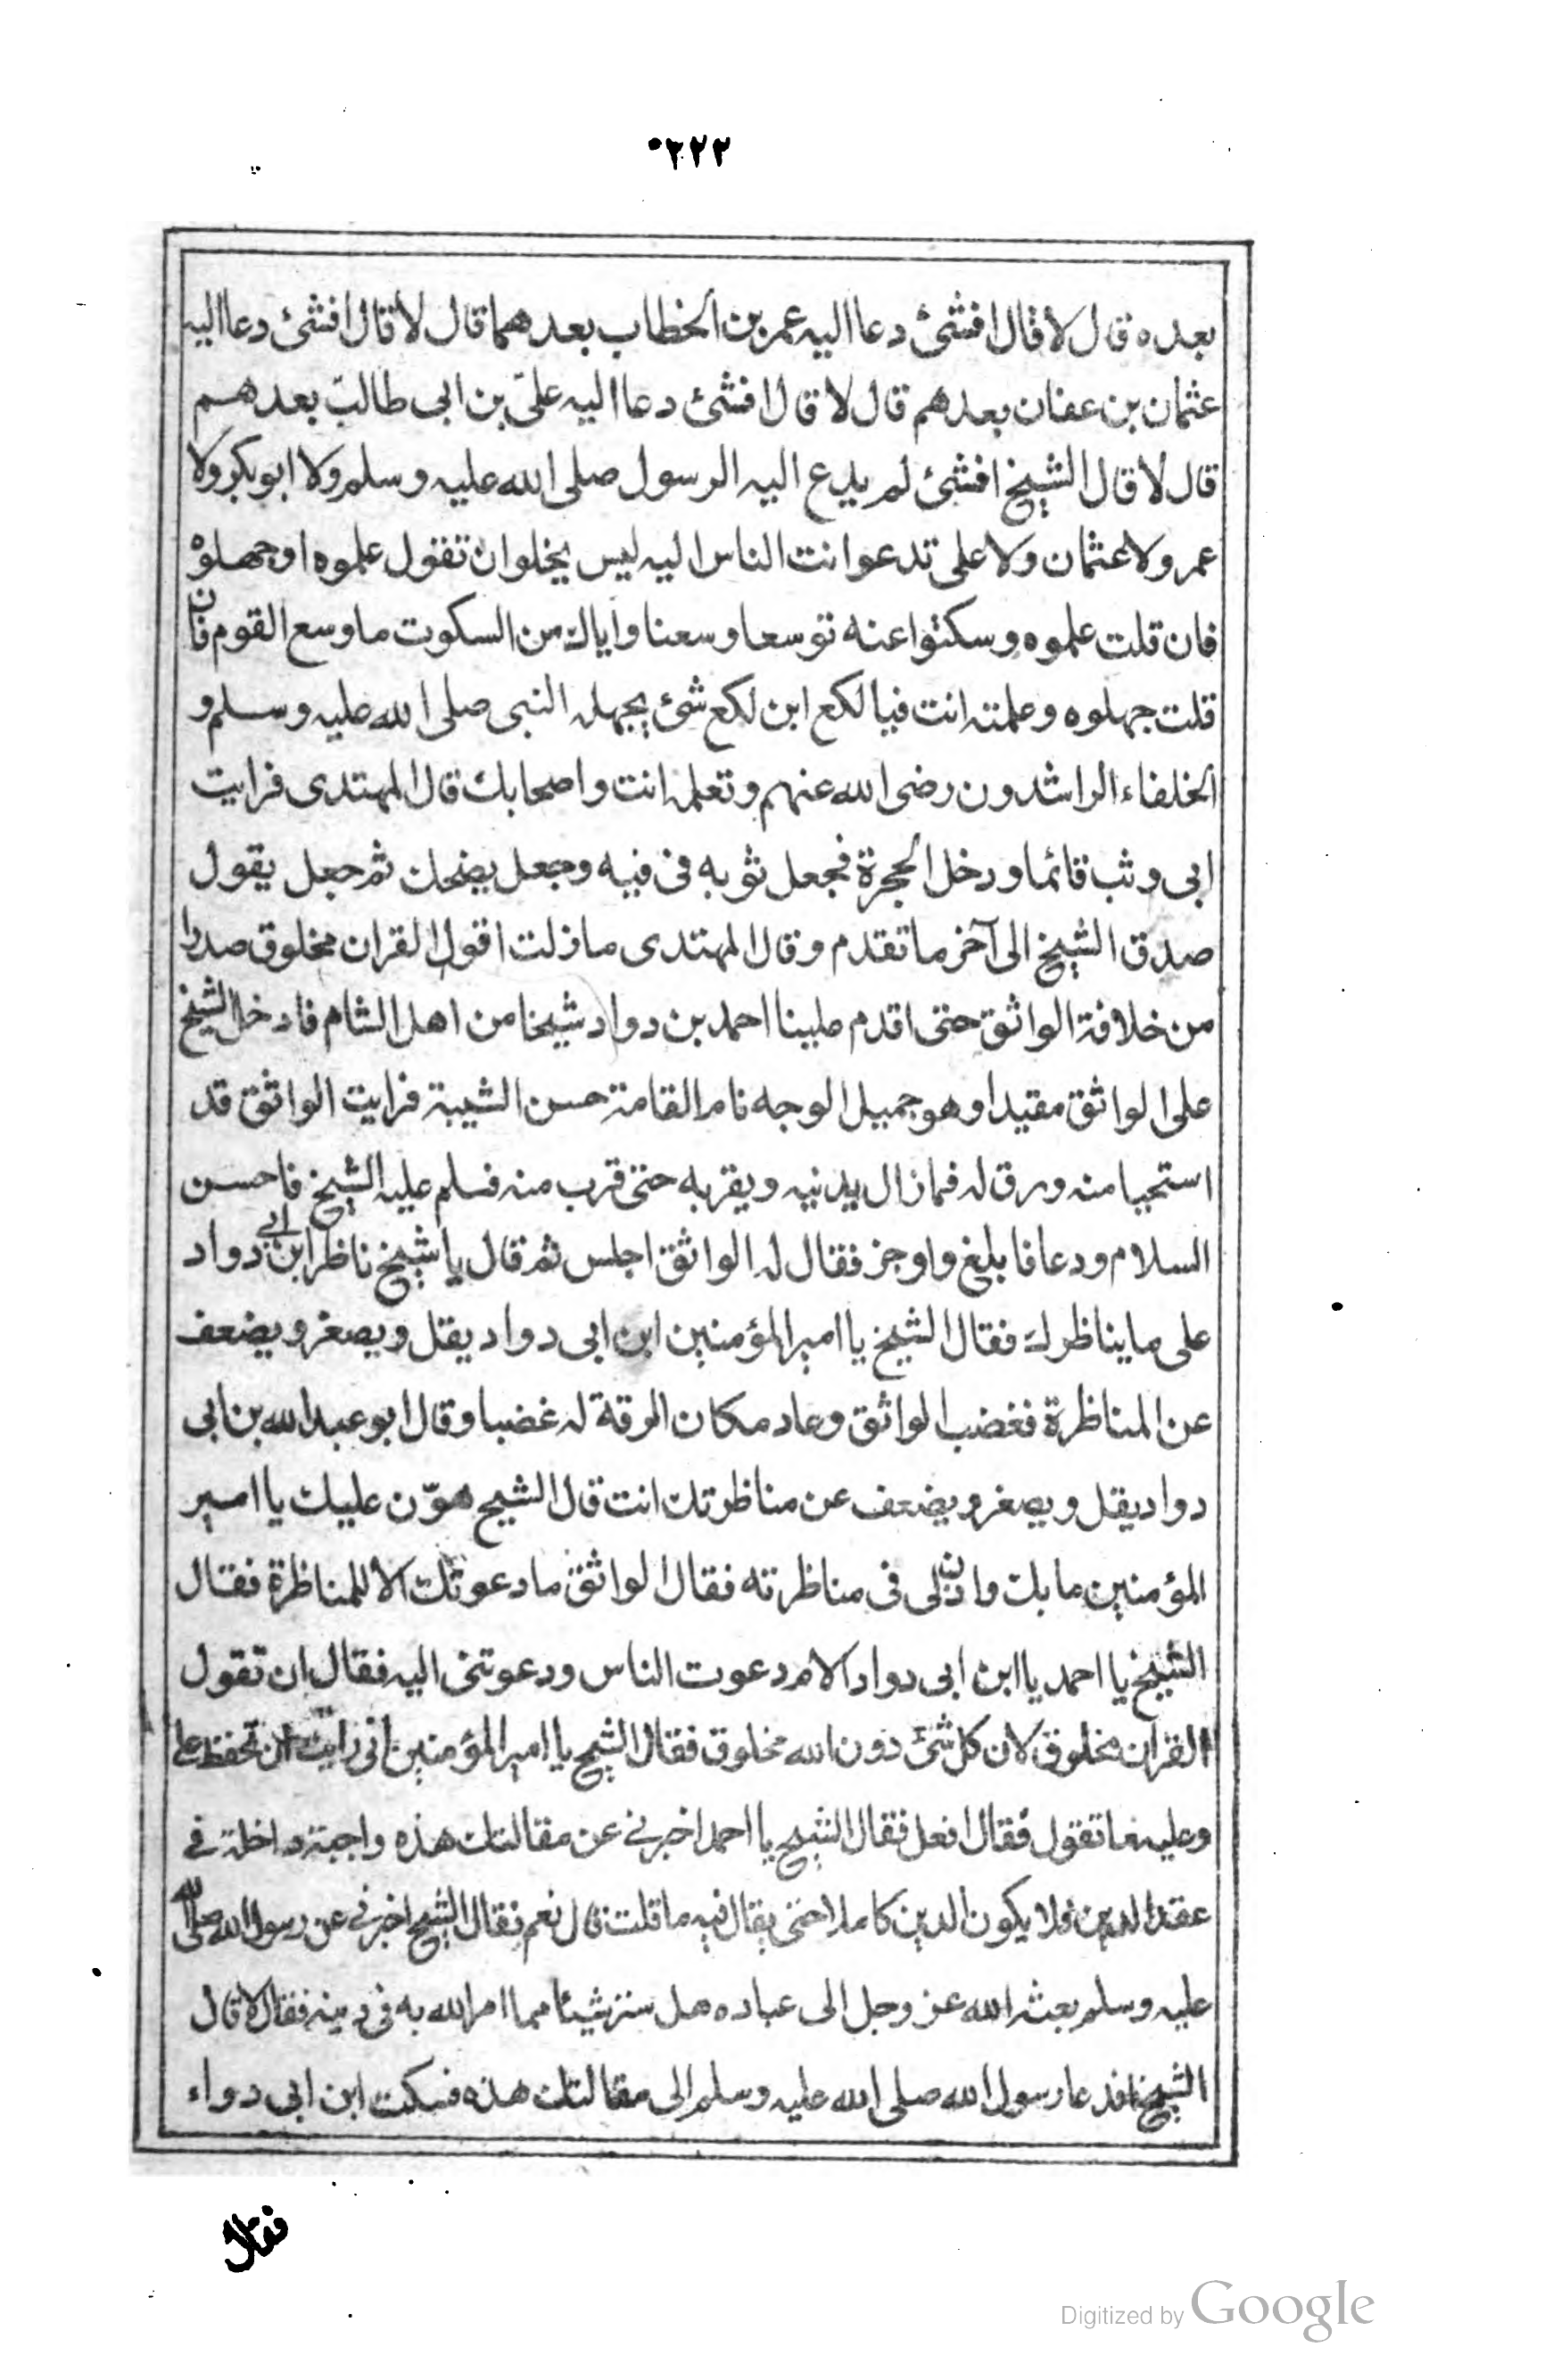 ٢٢٢
بعده قال لا قال افشئ دعا اليه عمر بن الخطاب بعدهما قال لا قال افشئ دعا اليه
عثمان بن عفان بعدهم قال لا قال افشئ دعا اليه علىّ بن ابى طالب بعدهم
قال لا قال الشيخ افشئ لم يدع اليه الرسول صلى الله عليه وسلم ولا ابو بكر ولا
عمر ولا عثمان ولا على تدعو انت الناس اليه ليس يخلو ان تقول علموه او جهلوه
فان قلت علموه وسكتوا عنه توسعا وسعنا واياك من السكوت ما وسع القوم فان
قلت جهلوه وعلمته انت فيا لكع ابن لكع شئ يجهله النبى صلى الله عليه وسلم و
الخلفاء الراشدون رضى الله عنهم وتعلمه انت واصحابك قال المهتدى فرايت
ابى وثب قائما ودخل الحجرة فجعل ثوبه فى فيه وجعل يضحك ثم جعل يقول
صدق الشيخ الى آخر ما تقدم وقال المهتدى مازلت اقول القران مخلوق صدرا
من خلافة الواثق حتى اقدم علينا احمد بن دواد شيخا من اهل الشام فادخل الشيخ
على الواثق مقيدا وهو جميل الوجه تام القامة حسن الشيبة فرايت الواثق قد
استحيا منه ورق له فمازال يدنيه ويقربه حتى قرب منه فسلم عليه الشيخ فاحسن
السلام ودعا فابلغ واوجز فقال له الواثق اجلس ثم قال يا شيخ ناظر ابن ابى دواد
على ما يناظرك فقال الشيخ يا امير المؤمنين ابن ابى دواد يقتل ويصغر ويضعف
عن المناظرة فغضب الواثق وعاد مكان الرقة له غضبا وقال ابو عبد الله بن ابى
دواد يقل ويصغر ويضعف عن مناظرتك انت قال الشيخ هوّن عليك يا امير
المؤمنين مابك واذن لى فى مناظرته فقال الواثق ما دعوتك الا للمناظرة فقال
الشيخ يا احمد يا ابن ابى دواد الام دعوت الناس ودعوتنى اليه فقال ان تقول
القران مخلوق لان كل شئ دون الله مخلوق فقال الشيخ يا امير المؤمنين انى رايت ان تحفظ على
وعليه ما تقول فقال افعل فقال الشيخ يا احمد اخبرنى عن مقالتك هذه واجبة داخلة فى
عقد الدين فلا يكون الدين كاملا حتى يقال فيه ما قلت قال نعم فقال الشيخ اخبرنى عن رسول الله صلى الله
عليه وسلم بعثه الله عز وجل الى عباده هل ستر شيئا مما امر الله به فى دينه فقال لا قال
الشيخ افدعا رسول الله صلى الله عليه وسلم الى مقالتك هذه فسكت ابن ابى دواء
فقال
Digitized by Google